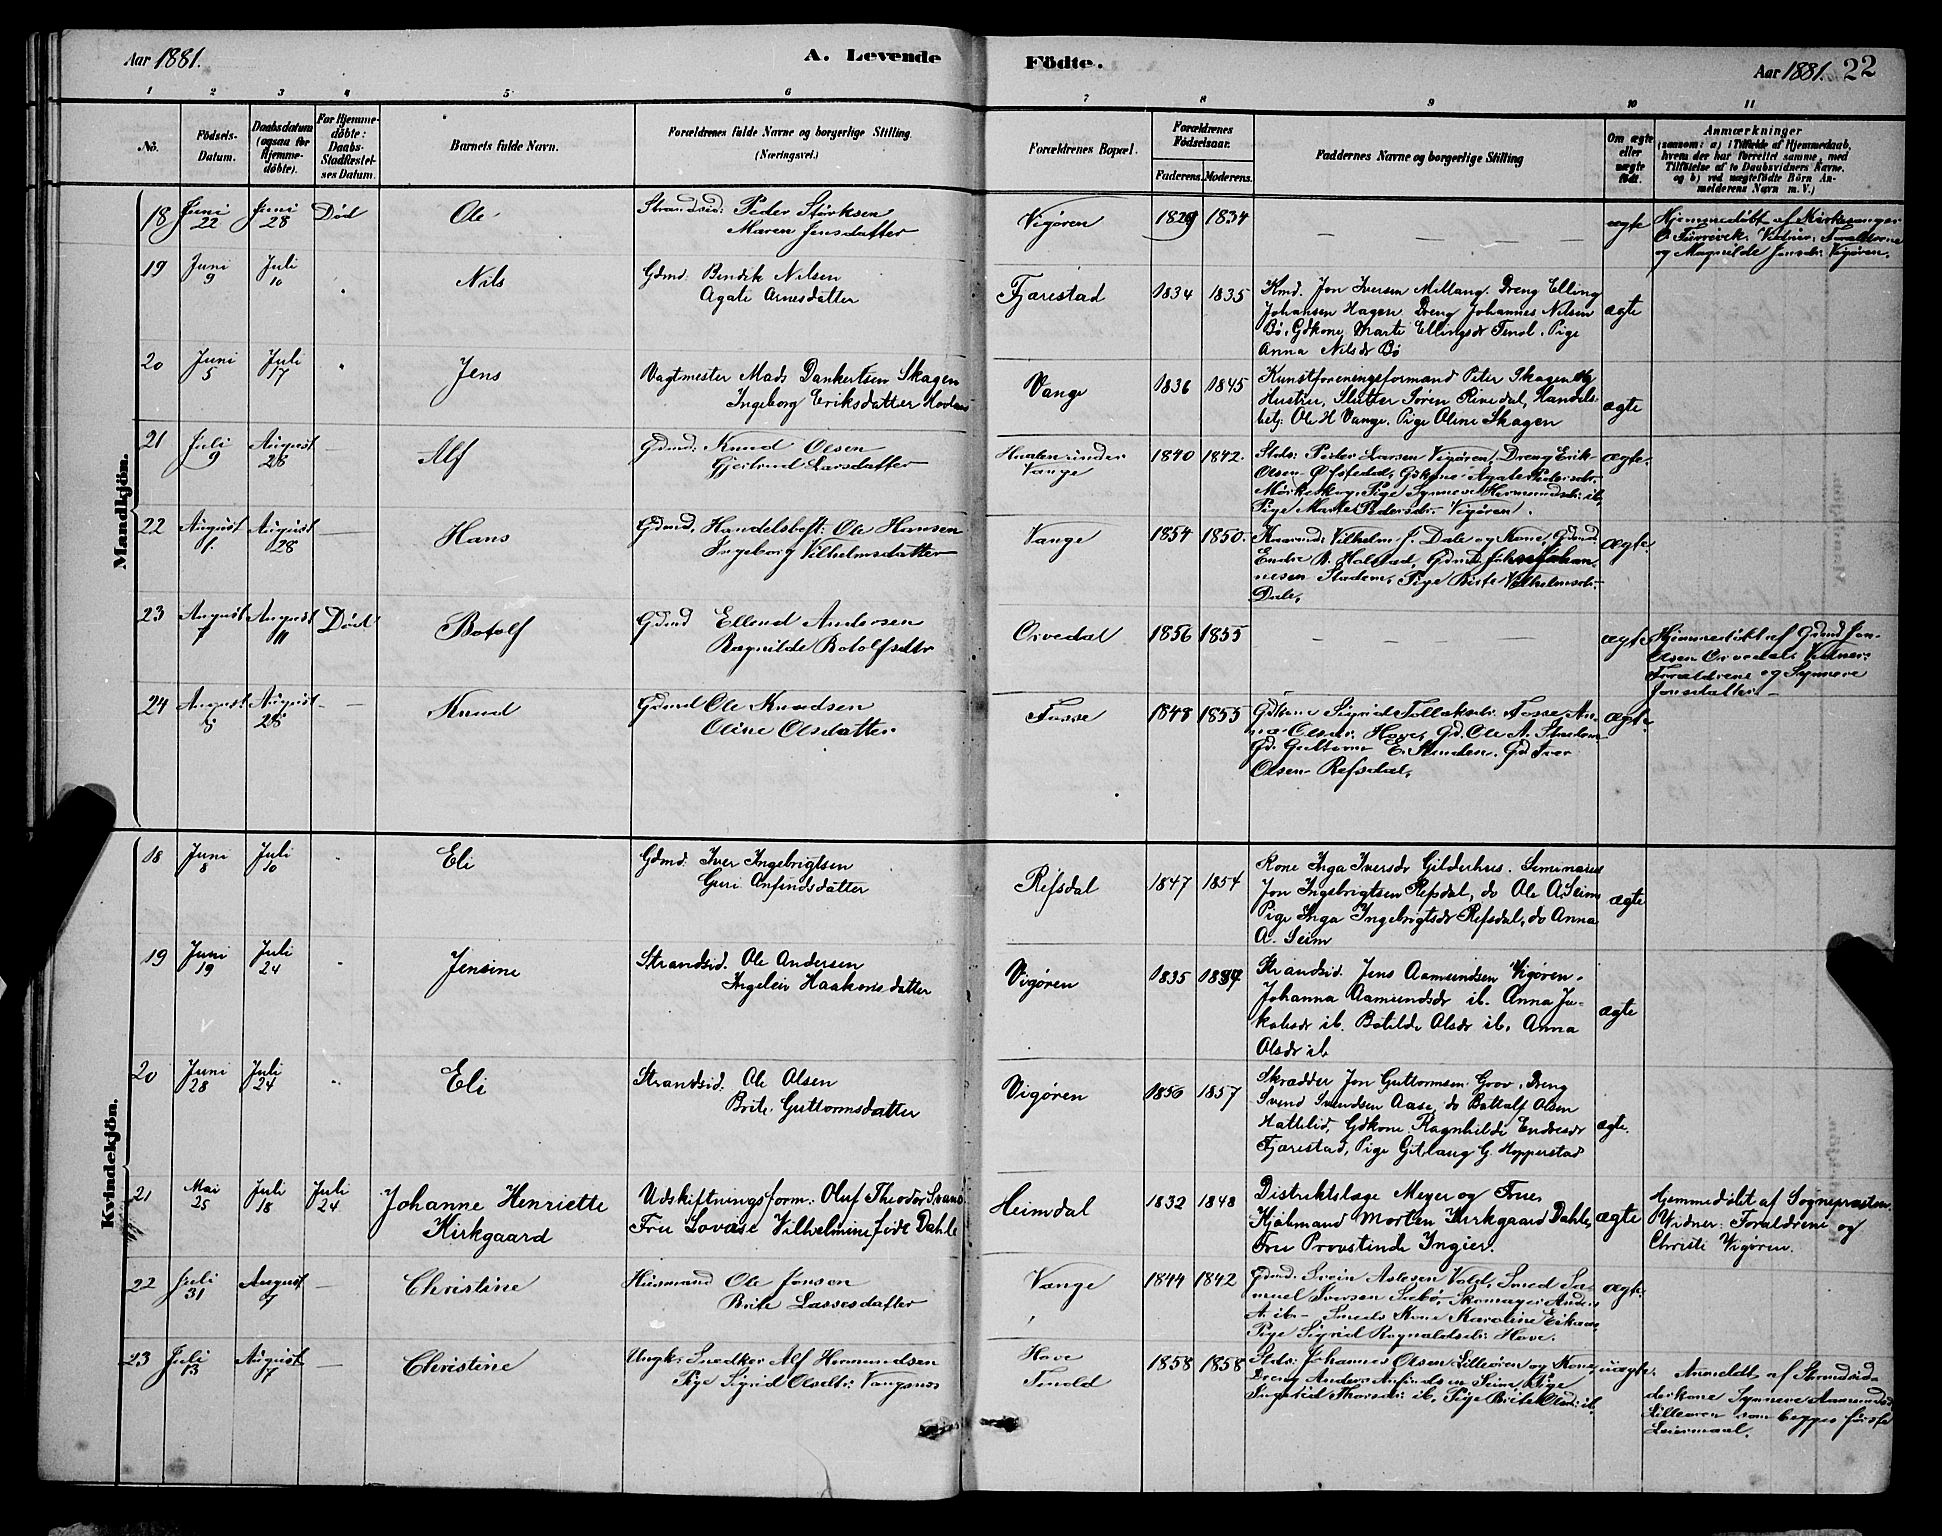 Aar 1881.
A. Levende
Födte.
Aar 1881. 22
1 2 3 4 5 6 7 8 9 10 11
No.
Födsels-
Datum.
Daabsdatum
(ogsaa for
Hjemme-
døbte).
For Hjemme-
døbte:
Daabs-
Stadfæstel-
ses Datum.
Barnets fulde Navn.
Forældrenes fulde Navne og borgerlige Stilling
(Næringsvei.)
Forældrenes Bopæl.
Forældrenes
Födselsaar.
Faderens. Moderens.
Faddernes Navne og borgerlige Stilling
Om ægte
eller
uægte
født.
Anmærkninger
(saasom: a) i Tilfælde af Hjemmedaab,
hvem der har forrettet samme, med
Tilföielse af to Daabsvidners Navne.
og b) ved uægtefödte Börn An-
melderens Navn m. V.)
Mandkjön.
18 Juni 22 Juni 28 Død Ole
Strandsid: Peder Størksen
Maren Jensdatter
Vigøren 1829 1834 — — — — ægte
Hjemmedøbt af Kirkesanger
Vidner: Forældrene
og Magnilde Jensdr: Vigøren.
19 Juni 9 Juli 10 " Nils
Gdmd: Bendik Nilsen
Agate Arnesdatter
Fjærestad 1834 1835
Kmd. Jon Iversen Millang. Dreng Elling
Johansen Hagen Dreng Johannes Nilsen
Bø, Gdkone Marte Ellingsdr Tenol. Pige
Anna Nilsdr Bø
ægte
20 Juni 5 Juli 17 " Jens
Vagtmester Mads Dankertsen Skagen
Ingeborg Eriksdatter
Vange 1836 1845
Kunstforeningsformand Peter Skagen og
Hustru, Slutter Søren Rivedal, Handels-
betj: Ole H Vange, Pige Oline Skagen
ægte
21 Juli 9 August 28 — Alf
Gdmd: Knud Olsen
Gjertrud Larsdatter
Haalen under
Vange 1840 1842.
Stds: Peder Larsen Vigøren, Dreng Erik
Olsen Øfstedal, Gdkone Agate Pedersdr:
Mørkeskog, Pige Synneve Hermundsdr: ib,
Pige Marte Pedersdr: Vigøren.
ægte.
22 August 1. August 28 — Hans
Gdmd. Handelsbetj: Ole Hansen
Ingeborg Vilhelmsdatter
Vange 1854 1850.
Vilhelm J. Dale og Kone, Gdmd
Endre B. Holstad, Gdmd Johan-
nesen Stadem, Pige Brite Vilhelmsdr:
Dale,
ægte.
23 August 7 August 11 Død Botolf
Gdmd Ellend Andersen
Ragnilde Botolfsdttr
Orvedal 1856 1855 — — — — ægte
Hjemmedøbt af Gdmd Jon
Olsen Orvedal. Vidner:
Forældrene og Synneve
Jonsdatter.—
24 August 6 August 28 — — Knud
Gdmd Ole Knudsen
Oline Olsdatter.
Fosse 1848 1855
Gdkone Sigrid Tollaksdr. Fosse, An-
na Olsdr: Hove, Gd. Ole A. Stadem
Gd. Guttorm E. Stenden. Gd Iver
Olsen Refsdal,
ægte.
Kvindekjön.
18 Juni 8 Juli 10 " Eli
Gdmd: Iver Ingebrigtsen
Guri Anfindsdatter
Refsdal 1847 1854
Kone Inga Iversdr Gilderhus. Seminarist
Jon Ingebrigtsen Refsdal, do Ole A. Seim
Pige Inga Ingebrigtsdr Refsdal, do Anna
A. Seim
ægte
19 Juni 19 Juli 24 " Jensine
Strandsid. Ole Andersen
Ingeleiv Haakonsdatter
Vigøren 1835 1837
Strandsid. Jens Aamundsen Vigøren.
Johanna Aamundsdr ib. Anna Ja-
kobsdr ib. Botilde Olsdr ib, Anna
Olsdr ib
ægte
20 Juni 28 Juli 24 " Eli
Strandsid. Ole Olsen
Brite Guttormsdatter
Vigøren 1850 1857
Skrædder Jon Guttormsen Grov, Dreng
Svend Svendsen Aase, do Bottolf Olsen
Hattelid, Gdkone Ragnhilde Endresdr
Fjærestad, Pige Gitlaug G. Hopperstad
ægte.
21 Mai 25 Juli 18 Juli 24 Johanne Henriette
Kirkgaard
Udskiftningsform: Oluf Theodor Svanø
Fru Lovase Vilhelmine født Dahle
Heimdal 1832 1848
Distriktslæge Meyer og Frue,
Kjøbmand Morten Kirkgaard Dahle,
Fru Provstinde Ingier.
ægte
Hjemmedøbt af Sognepræsten
Vidner: Forældrene og
Christi Vigøren.
22 Juli 31 August 7 — Christine
Husmand Ole Jonsen
Brite Lassesdatter
Vange 1844 1842
Gdmd. Svein Aslesen Vold, Smed Sa-
muel Iversen Sæbø, Skomager Anders
A. ib — Smeds Kone Karoline
Pige Sigrid Ragnaldsdr: Hove.
ægte.
23 Juli 13 August 7 — Christine
Ungk: Snedker Alf Hermundsen
Pige Sigrid Olsdtr: Vangsnes
Hove
Tenold 1858 1858
Stds: Johannes Olsen Lilleøren og Kone,
Dreng Anders Anfindsen Seim Pige
Ingerid Thorsdr: ib, Pige Brite Olsdr: ib,
uægte.
Anmeldt af Strandsid-
derkone Synneve Aamundsd
Lilleøren som begges første
Leiermaal.